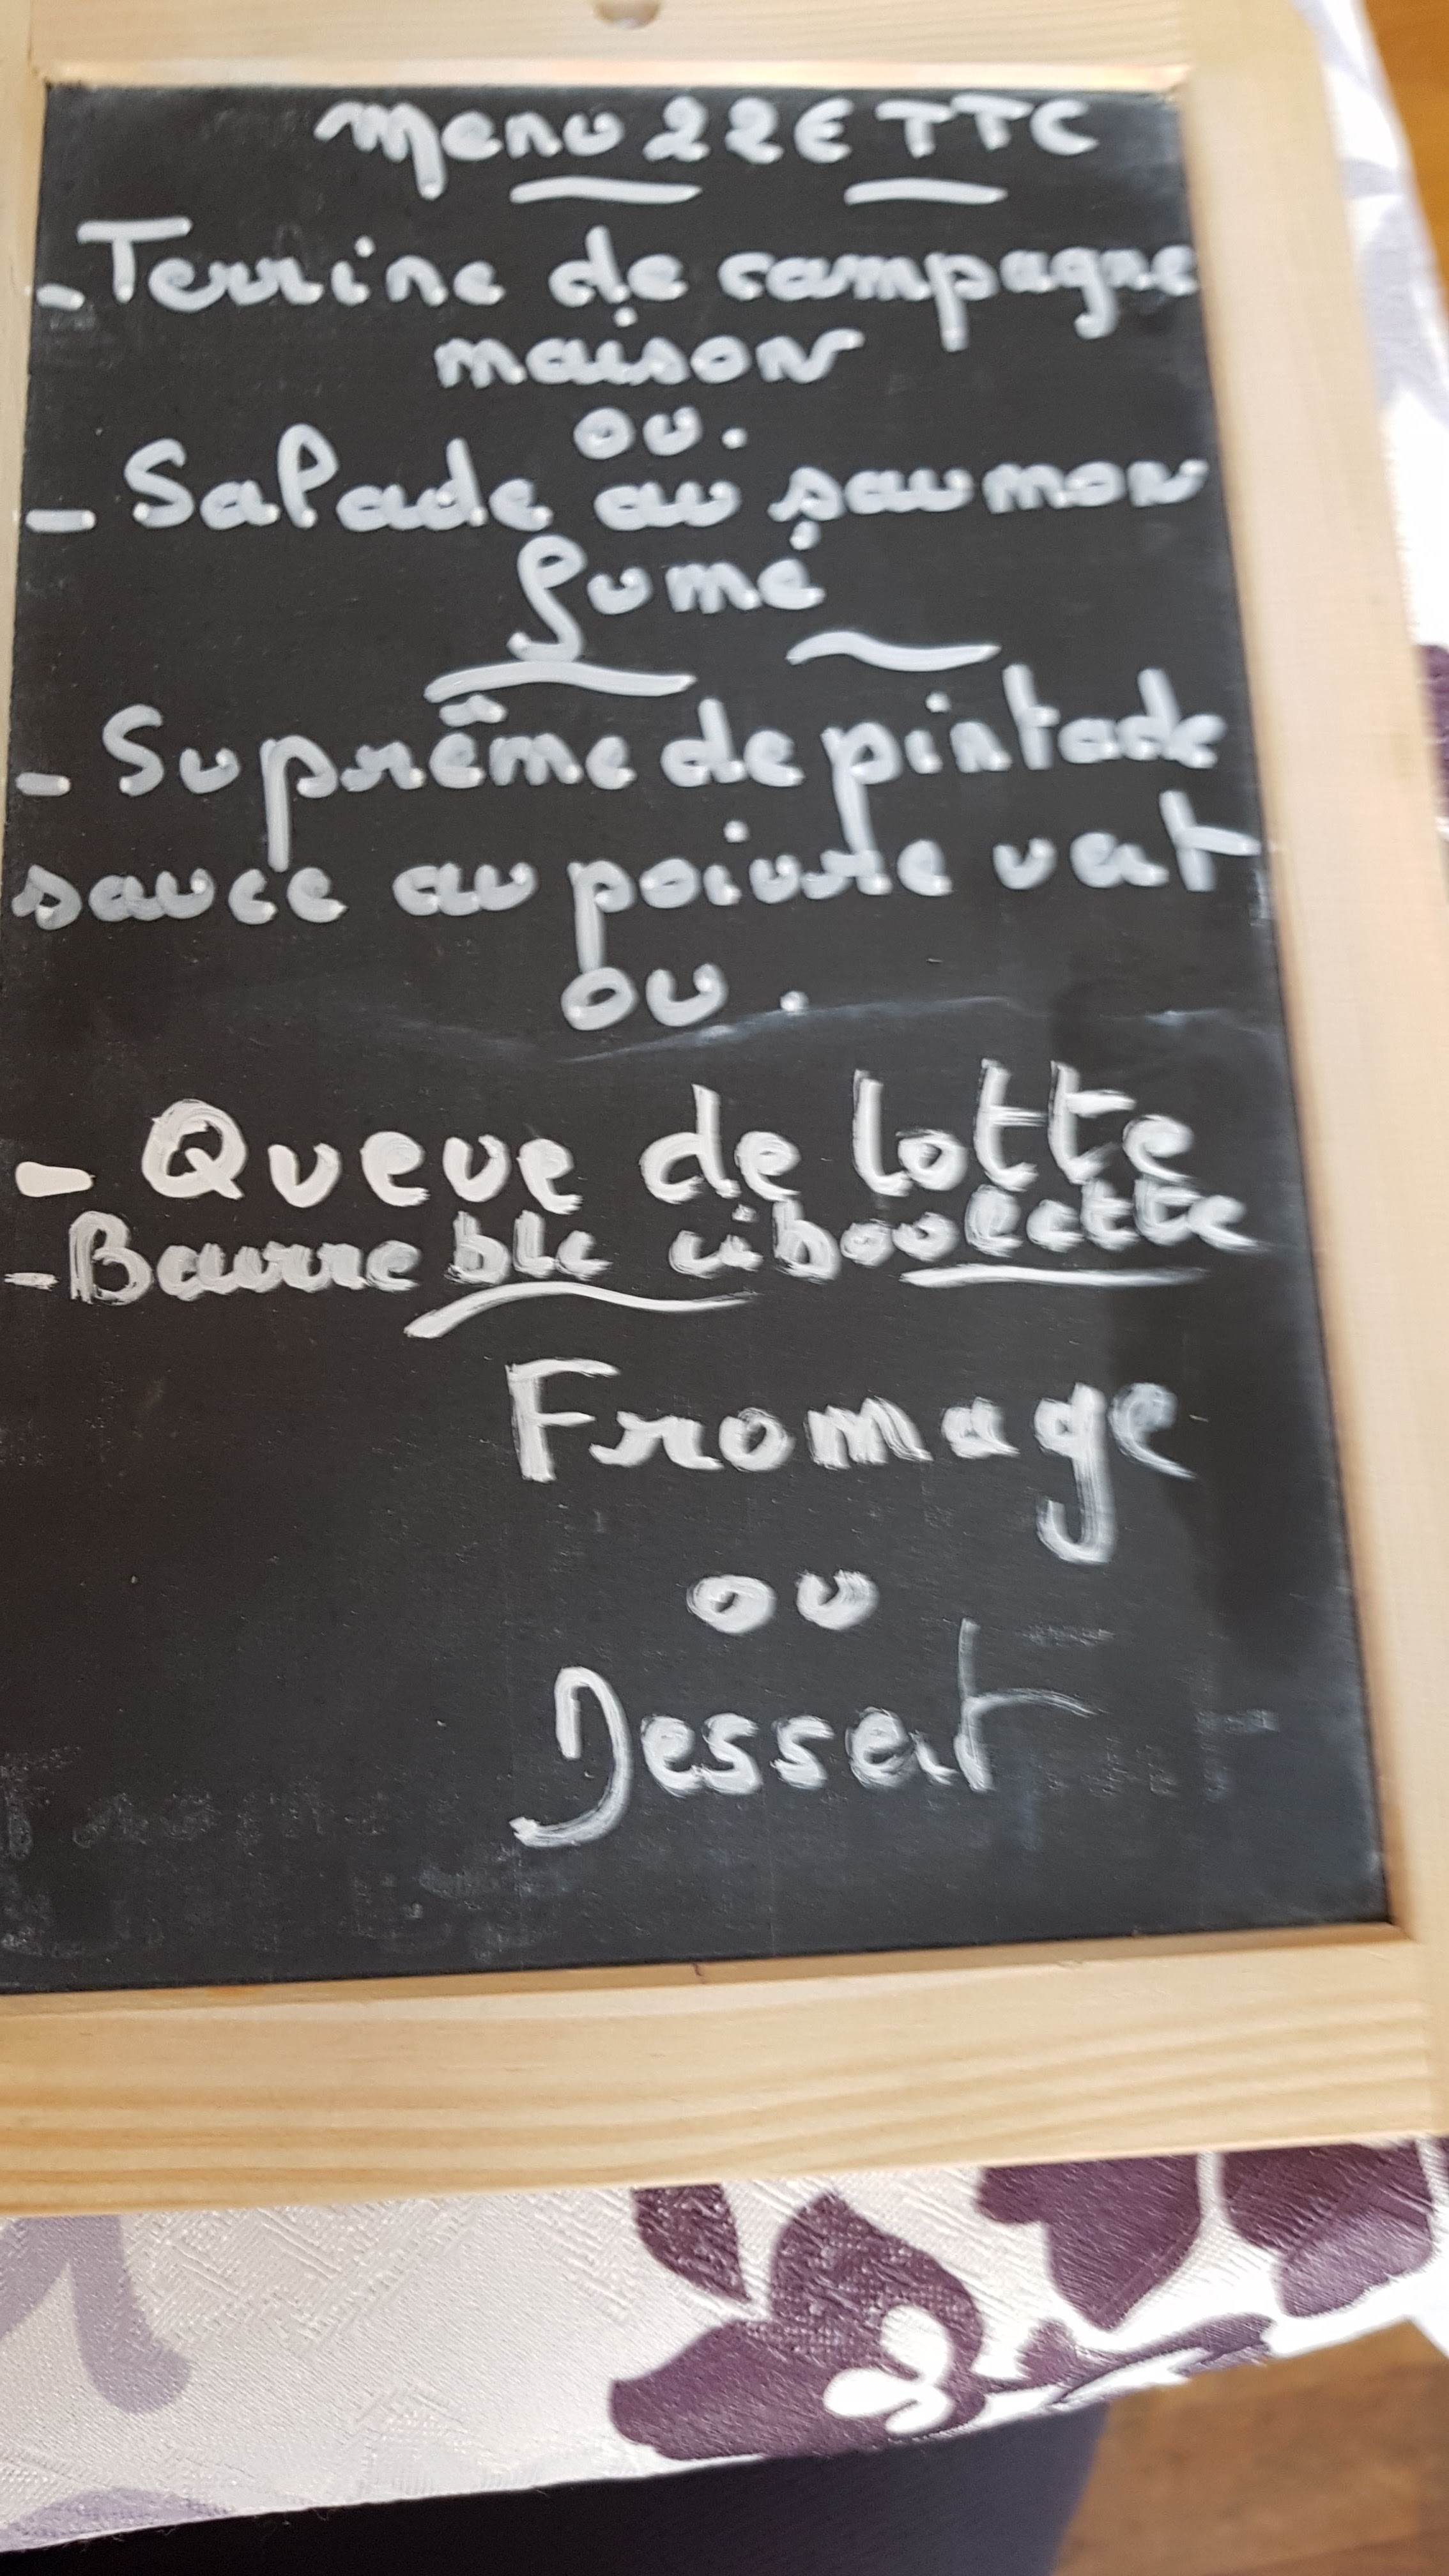 Menu 22€ TTC
- Terrine de campagne
maison
ou.
- Salade au saumon
fumé
- Suprême de pintade
sauce au poivre vert
ou.
- Queue de lotte
- Beurre blc ciboulette
Fromage
ou
Dessert